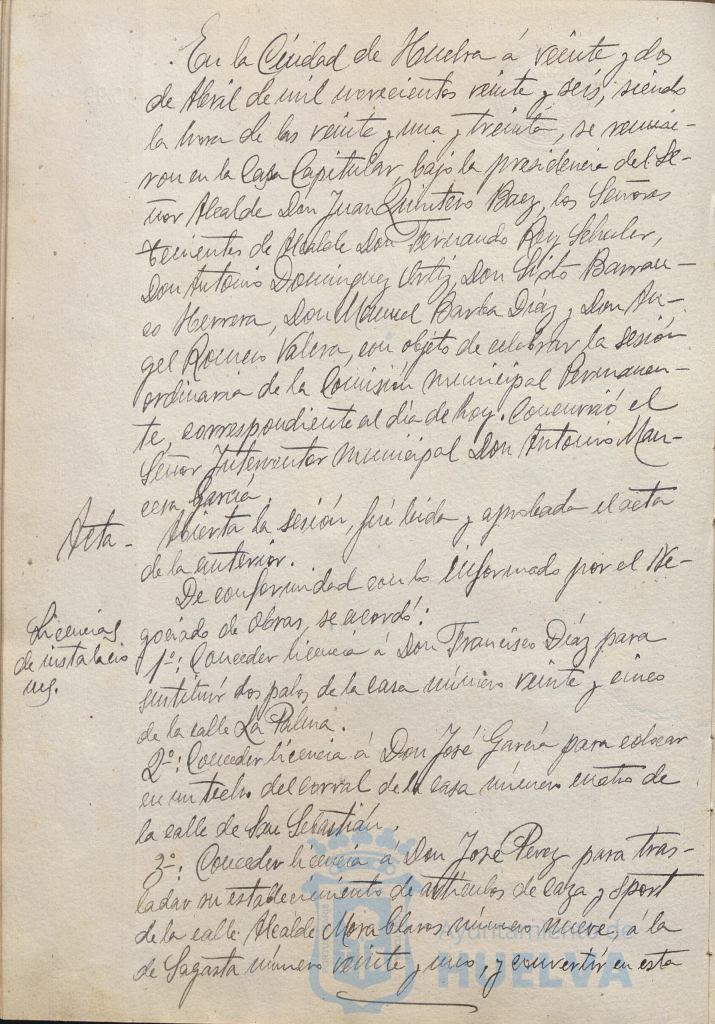 En la Ciudad de Huelva á veinte y dos
de Abril de mil novecientos veinte y seis, siendo
la hora de las veinte y una y treinta, se reunie-
ron en la Casa Capitular, bajo la presidencia del Se-
ñor Alcalde Don Juan Quintero Baez, los Señores
tenientes de Alcalde Don Fernando Rey Schuler,
Don Antonio Dominguez Ortiz, Don Sixto Barran-
co Herrera, Don Manuel Barba Diaz y Don An-
gel Romero Valera, con objeto de celebrar la sesión
ordinaria de la Comisión municipal Permanen-
te, correspondiente al dia de hoy. Concurrió el
Señor Interventor municipal Don Antonio
García.
Acta- Abierta la sesión, fué leida y aprobada el acta
de la anterior.
De conformidad con lo informado por el Ne-
gociado de Obras, se acordó:
Licencias
de instalacio
nes.
1º: Conceder licencia á Don Francisco Díaz para
sustituir dos palos de la casa número veinte y cinco
de la calle La Palma.
2º: Conceder licencia á Don José García para colocar
en un techo del corral de la casa número cuatro de
la calle de San Sebastián.
3º: Conceder licencia á Don José Perez para tras-
ladar su establecimiento de artículos de caza y sport
de la calle Alcalde Mora Claros número nueve, á la
de Sagasta número veinte y uno, y convertir en esta
Ayuntamiento de
HUELVA